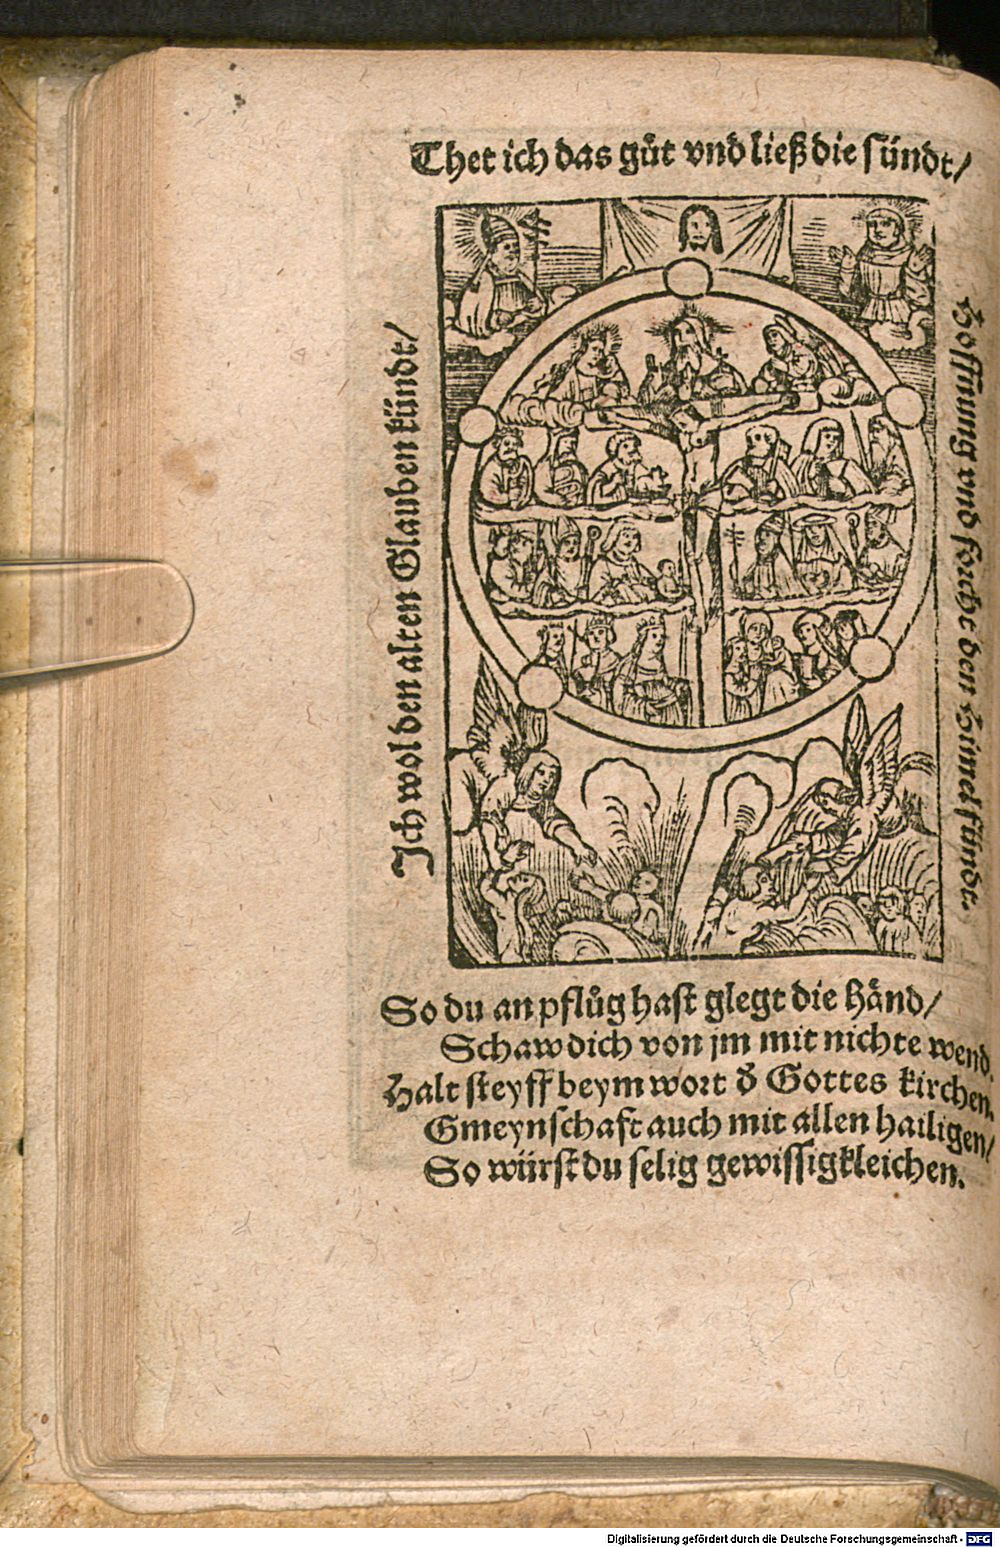 Thet ich das gůt vnd ließ die sündt/
Ich wol den alten Glauben kündt/
Hoffnung vnd forcht den Himel fündt.
So du an pflůg hast glegt die Händ/
Schaw dich von jm mit nichte wend.
Halt steyff beym wort d̕ Gottes kirchen.
Gmeynschafft auch mit allen hailigen/
So würst du selig gewissigkleichen.
Digitalisierung gefördert durch die Deutsche Forschungsgemeinschaft - DFG